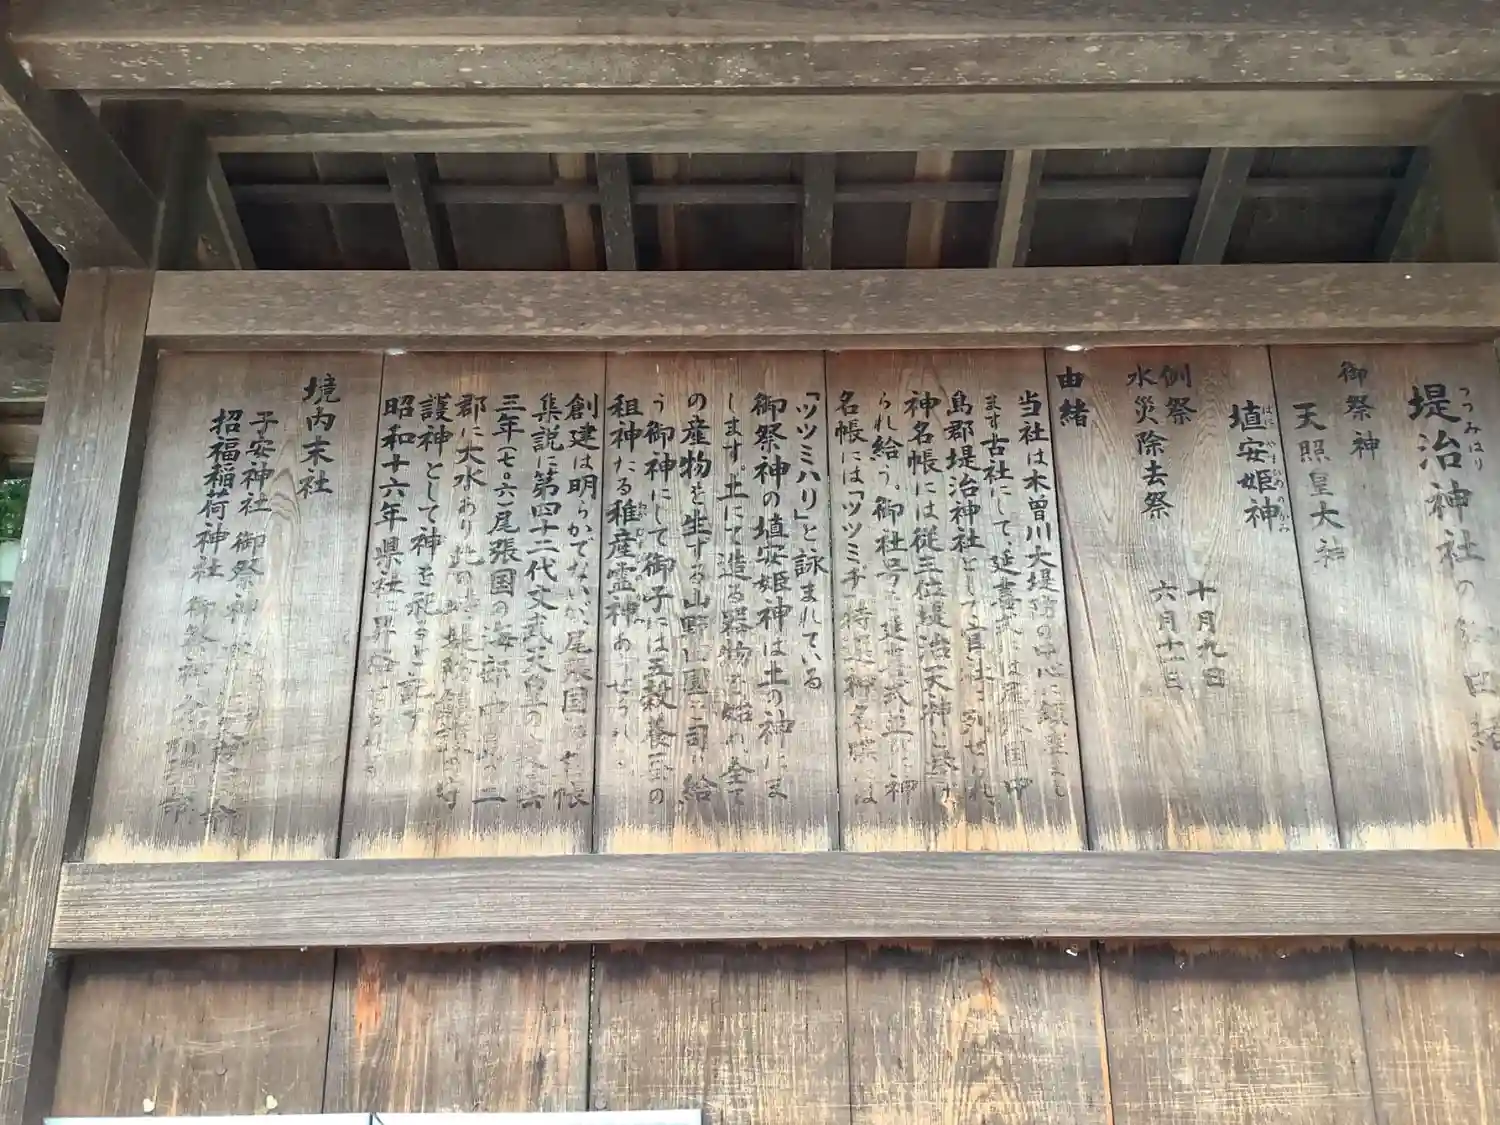 堤治神社の御由緒
つつみはり
御祭神
天照皇大神
埴安姫神
はに やす ひめ の かみ
例祭 十月九日
水災除去祭 六月十二日
由緒
当社は木曽川大堤防の中心に鎮座まし
ます古社にして、延喜式には尾張国中
島郡堤治神社として官社に列せられ
神名帳には従三位堤治天神と崇め
られ給う。御社号を延喜式並に神
名帳には「ツツミチ」特選神名牒には
「ツツミハリ」と詠まれている
御祭神の埴安姫神は土の神にま
します。土にて造る器物を始め、全て
の産物を生ずる山野田園を司り給
う御神にして御子には五穀養蚕の
祖神たる稚産霊神あらせらる
創建は明らかでないが、尾張国神名帳
集説に第四十二代文武天皇の慶雲
三年(七〇六)尾張国の海部中島の二
郡に大水あり此の時、堤防鎮護の守
護神として神を祀ると記す
昭和十六年県社に昇格
境内末社
子安神社 御祭神
招福稲荷神社 御祭神